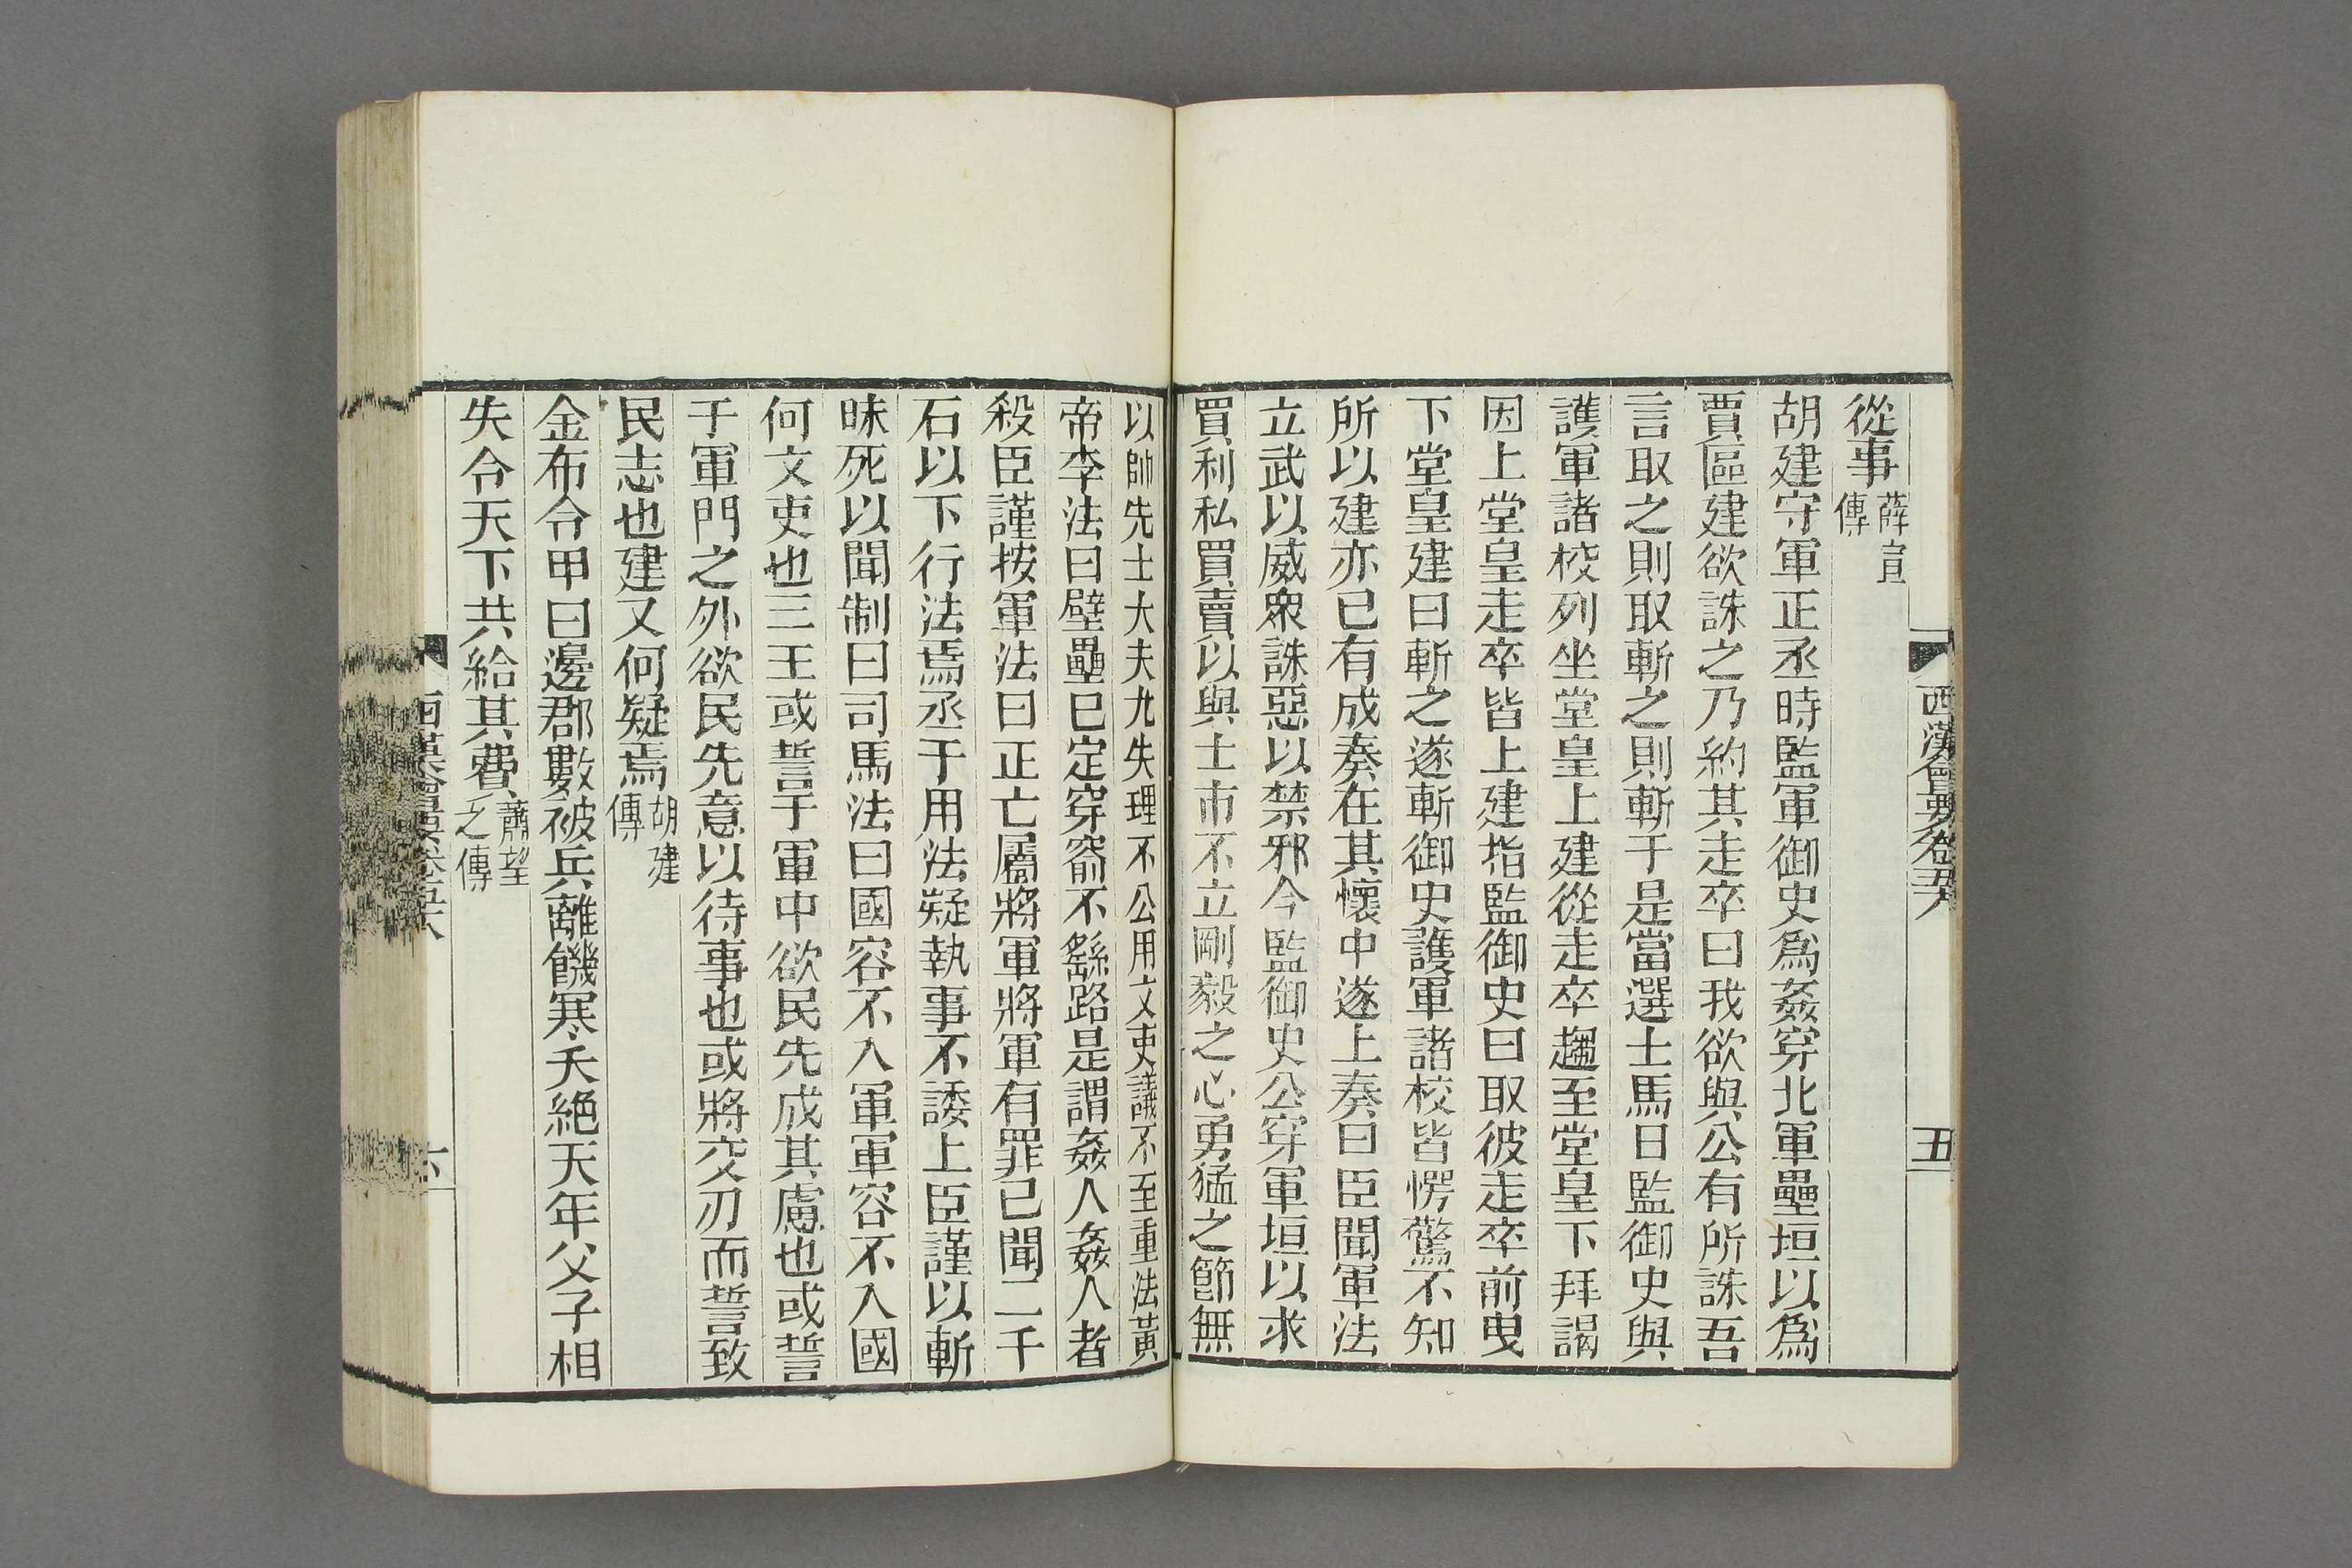 西漢會要卷五十八
五
從事薛宣傳
胡建守軍正丞時監軍御史爲姦穿北軍壘垣以爲
賈區建欲誅之乃約其走卒曰我欲與公有所誅吾
言取之則取斬之則斬于是當選士馬日監御史與
護軍諸校列坐堂皇上建從走卒趨至堂皇下拜謁
因上堂皇走卒皆上建指監御史曰取彼走卒前曳
下堂皇建曰斬之遂斬御史護軍諸校皆愕驚不知
所以建亦已有成奏在其懷中遂上奏曰臣聞軍法
立武以威衆誅惡以禁邪今監御史公穿軍垣以求
買利私買賣以與士市不立剛毅之心勇猛之節無
以帥先士大夫尢失理不公用文吏議不至重法黃
帝李法曰壁壘已定穿窬不繇路是謂姦人姦人者
殺臣謹按軍法曰正亡屬將軍將軍有罪已聞二千
石以下行法焉丞于用法疑執事不諉上臣謹以斬
昧死以聞制曰司馬法曰國容不入軍軍容不入國
何文吏也三王或誓于軍中欲民先成其慮也或誓
于軍門之外欲民先意以待事也或將交刃而誓致
民志也建又何疑焉胡建傳
金布令甲曰邊郡數被兵離饑寒夭絕天年父子相
失令天下共給其費蕭望之傳